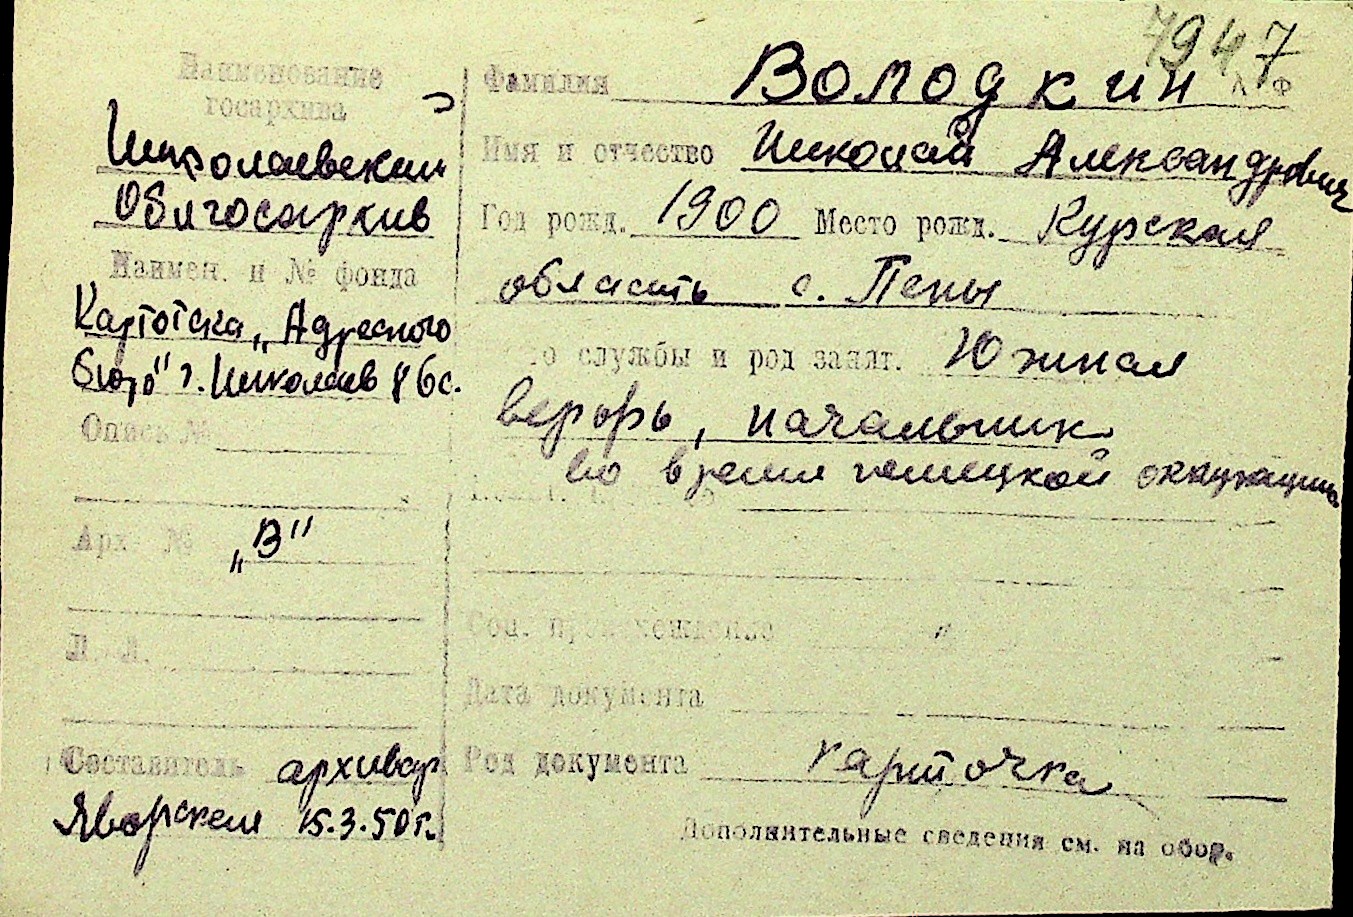 7947
Наименование
госархива
Николаевский
Облгосархив
Наимен. и № фонда
Картотека „Адресного
бюро" г. Николаев
Опись №
Арх №
„В"
Л. Л.
Составитель архивар
Яворская 15.3.50 г.
Фамилия Володкин
Имя и отчество Николай Александрович
Год рожд. 1900 Место рожд. Курская
область с. Пены
службы и род занят. Южная
верфь, начальник
во время немецкой оккупации
Соц. происхождение "
Дата документа
Род документа карточка
Дополнительные сведения см. на обор.